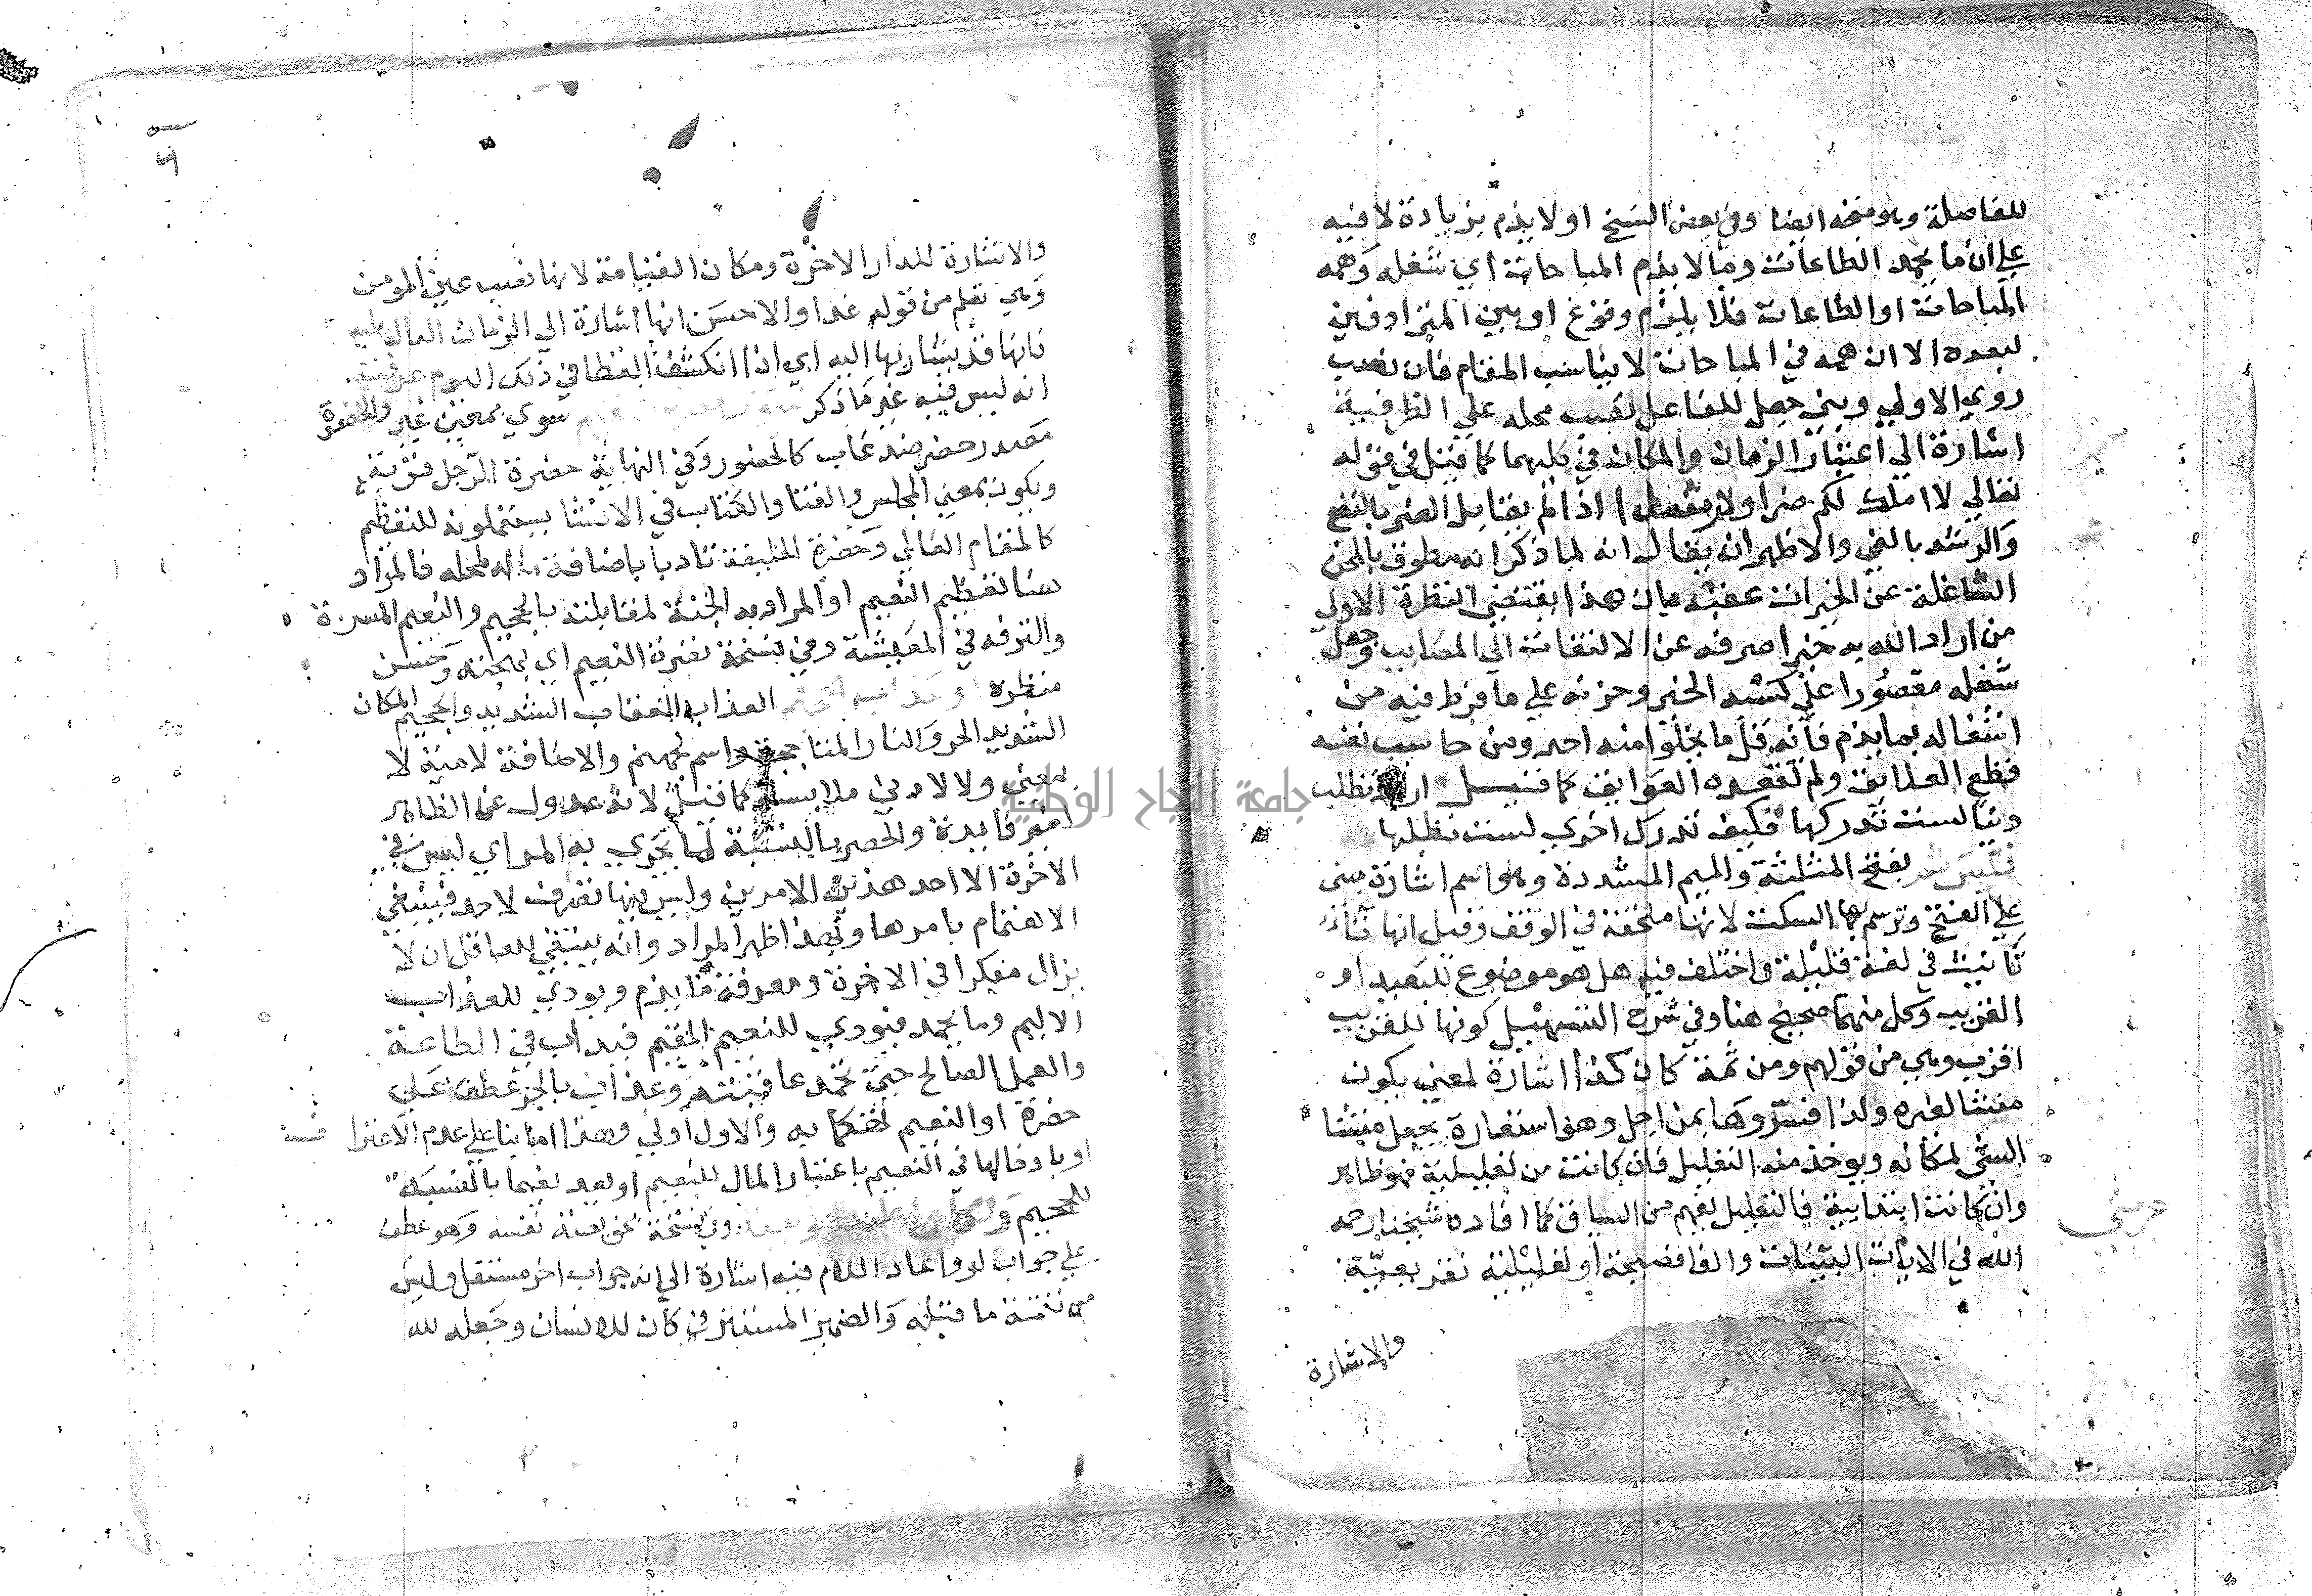 للفاصلة وهو متجه ايضا وفي بعض النسخ او لا يذم بزيادة لا فيه
علي ان ما يحمد الطاعات وما لا يذم المباحات اي شغله وهمه
المباحات او الطاعات فلا يلزم وقوع او بين المترادفين
لبعده الا ان همه في المباحات لا يناسب المقام فان نصب
روي الاولي وبني جعل للفاعل نصب محله علي الظرفية
اشارة الي اعتبار الزمان والمكان في كليهما كما قيل في قوله
تعالي لا املك لكم ضرا ولا رشدا اذ لم يقابل الضر بالنفع
والرشد بالغي والاظهر ان يقال انه لما ذكر انه مطوق بالمحن
الشاغلة عن الخيرات عقبه بان هذا بمقتضي النظرة الاولي
من اراد الله به خيرا صرفه عن الالتفات الي المصايب وجعل
شغله مقصورا علي كسب الخير وحزنه علي ما فرط فيه من
اشتغاله بما يذم فانه قل ما يخلوا منه احد ومن حاسب نفسه
قطع العلايق ولم تقعده العوايق كما قيل اراك تطلب
دنيا لست تدركها فكيف تدرك اخري لست تطلبها
فليس ثم بفتح المثلثة والميم المشددة وهو اسم اشارة مبني
علي الفتح وترسم بها السكت لانها ملحقة في الوقف وقيل انها تاء
تانيث في لغة قليلة واختلف فيه هل هو موضوع للبعيد او
القريب وكل منهما صحيح هنا وفي شرح التسهيل كونها للقريب
اقرب وهي من قولهم ومن ثمة كان كذا اشارة لمعني يكون
منشا لغيره ولذا فسروها بمن اجل وهي استعارة بجعل منشا
الشي لمكانه ويوخذ منه التعليل فان كانت من تعليلية فهو ظاهر
وان كانت ابتدايية فالتعليل يفهم من السياق كما افاده شيخنا رحمه
الله في الايات البينات والفا فصيحة او تعليلية تفريعية
والاشارة
والاشارة للدار الاخرة ومكان القيامة لانها نصب عين المومن
وهي تعلم من قوله غدا والاحسن انها اشارة الي الزمان الدال عليه
فانها قد يشار بها اليه اي اذا انكشف الغطا في ذلك اليوم عرفت
انه ليس فيه غير ما ذكر سوي بمعني غير والحضرة
مصدر حضر ضد غاب كالحضور وفي النهاية حضرة الرجل قربه
ويكون بمعني المجلس والفنا والكتاب في الانشا يستعملونه للتعظيم
كالمقام العالي وحضرة الخليفة تادبا باضافة ماله لمحله فالمراد
هنا تعظيم النعيم او المراد به الجنة لمقابلته بالجحيم والنعيم المسرة
والترفه في المعيشة وفي نسخة نضرة النعيم اي بهجته وحسن
منظره او عذاب الجحيم العذاب العقاب الشديد والجحيم المكان
الشديد الحر والنار المتاججة واسم لجهنم والاضافة لامية لا
بمعني ولا لادني ملابسة كما قيل لانه عدول عن الظاهر
لغير فايدة والحصر بالنسبة لما يجري به المد اي ليس في
الاخرة الا احد هذين الامرين وليس فيها تصرف لاحد فينبغي
الاهتمام بامرها وبهذا ظهر المراد وانه ينبغي للعاقل ان لا
يزال مفكرا في الاخرة ومعرفة ما يذم ويودي للعذاب
الاليم وما يحمد فيودي للنعيم المقيم فيداب في الطاعة
والعمل الصالح حتي تحمد عاقبته وعذاب بالجر عطف علي
حضرة او النعيم تهكما به والاول اولي وهذا اما بنا علي عدم الاعترا ف
او بادخالها في النعيم باعتبار المال للنعيم او بعد نعيما بالنسبة
للجحيم وكان وفي نسخة بخويصة نفسه وهو عطف
علي جواب لو واعاد اللام فيه اشارة الي انه جواب اخر مستقل وليس
من تتمة ما قبله والضمير المستتر في كان للانسان وجعله لله